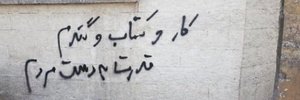 کار و کتاب و گندم
قدرتت به دست مردم